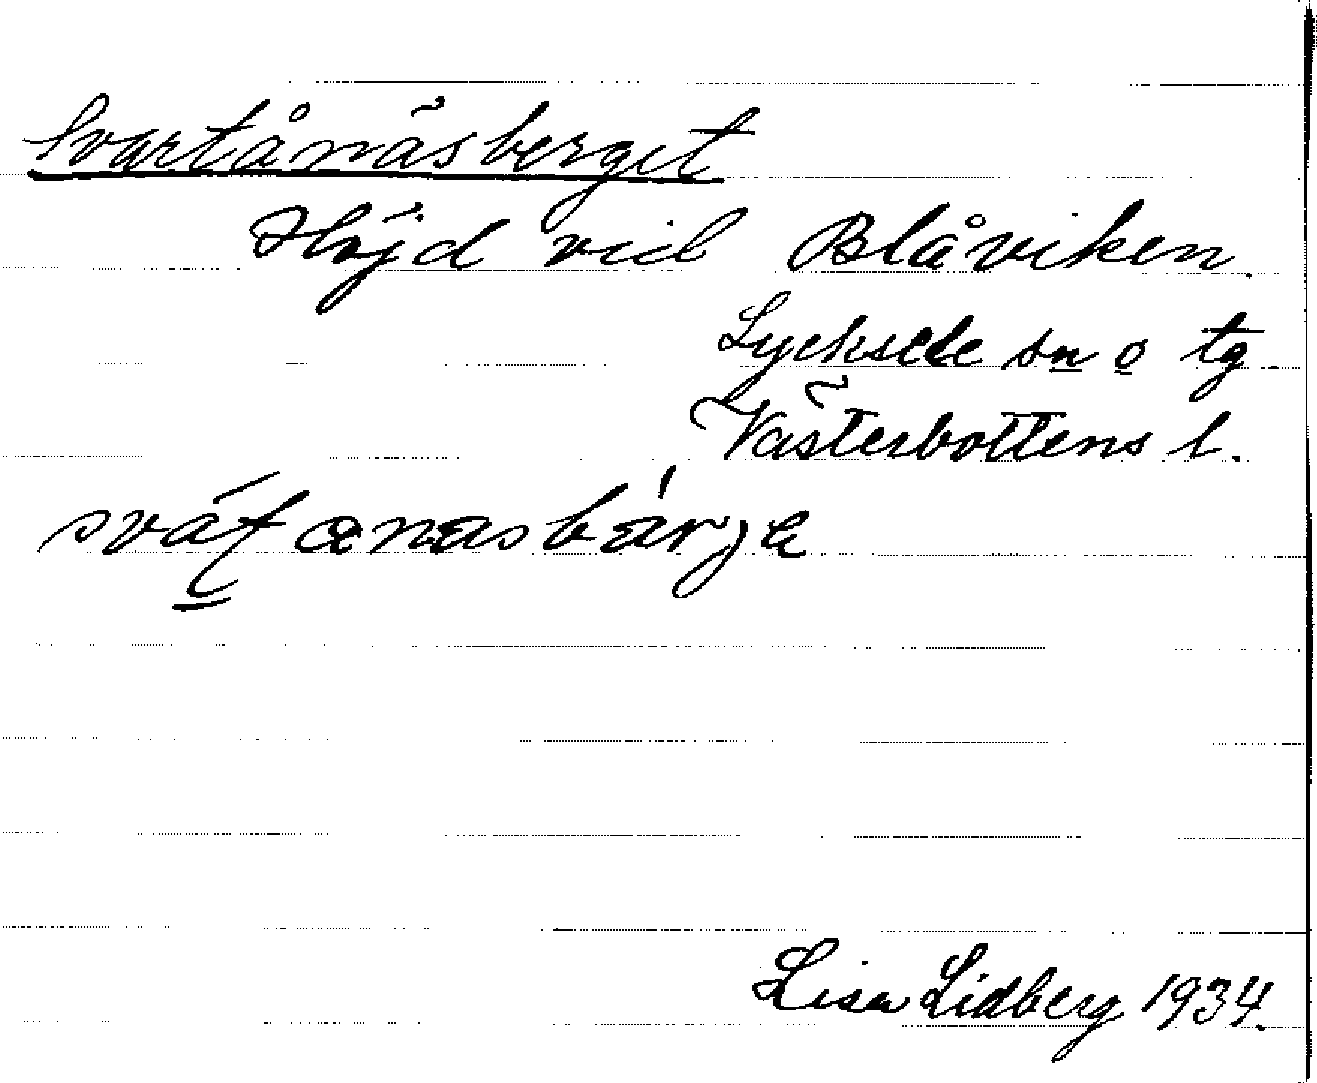 Svartånäsberget
Höjd vid Blåviken.
Lycksele sn o tg.
Västerbottens l.
Lisa Lidberg 1934.